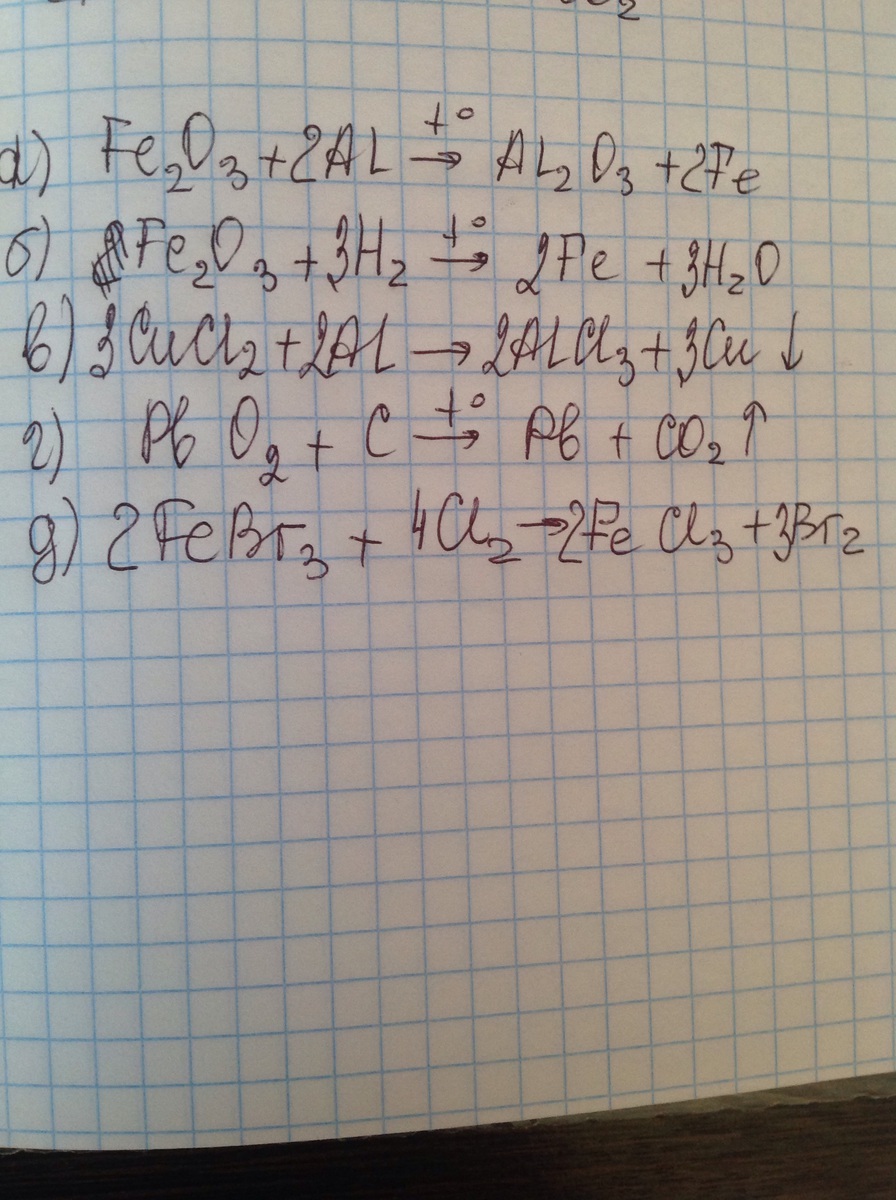 а) Fe₂O₃ + 2Al t°→ Al₂O₃ + 2Fe
б) Fe₂O₃ + 3H₂ t°→ 2Fe + 3H₂O
в) 3CuCl₂ + 2Al → 2AlCl₃ + 3Cu ↓
г) PbO₂ + C t°→ Pb + CO₂ ↑
д) 2FeBr₃ + 4Cl₂ → 2FeCl₃ + 3Br₂